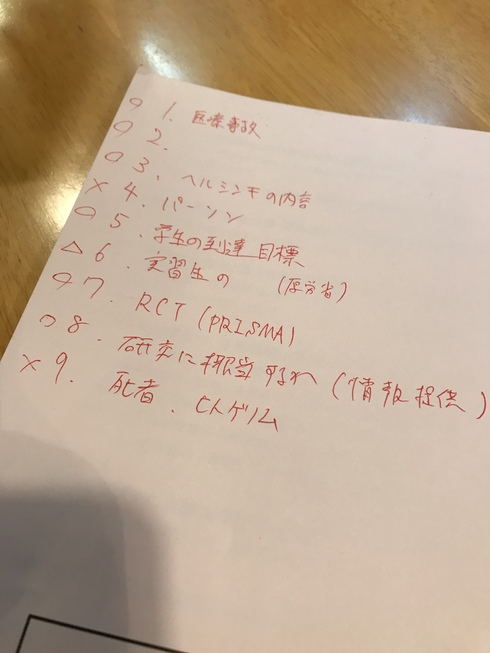 ○ 1. 医療事故
○ 2.
○ 3. ヘルシンキの内容
× 4. パーソン
○ 5. 学生の到達目標
△ 6. 実習生の (厚労省)
○ 7. RCT (PRISMA)
○ 8. 研究に担当するか (情報提供)
× 9. 死者、ヒトゲノム